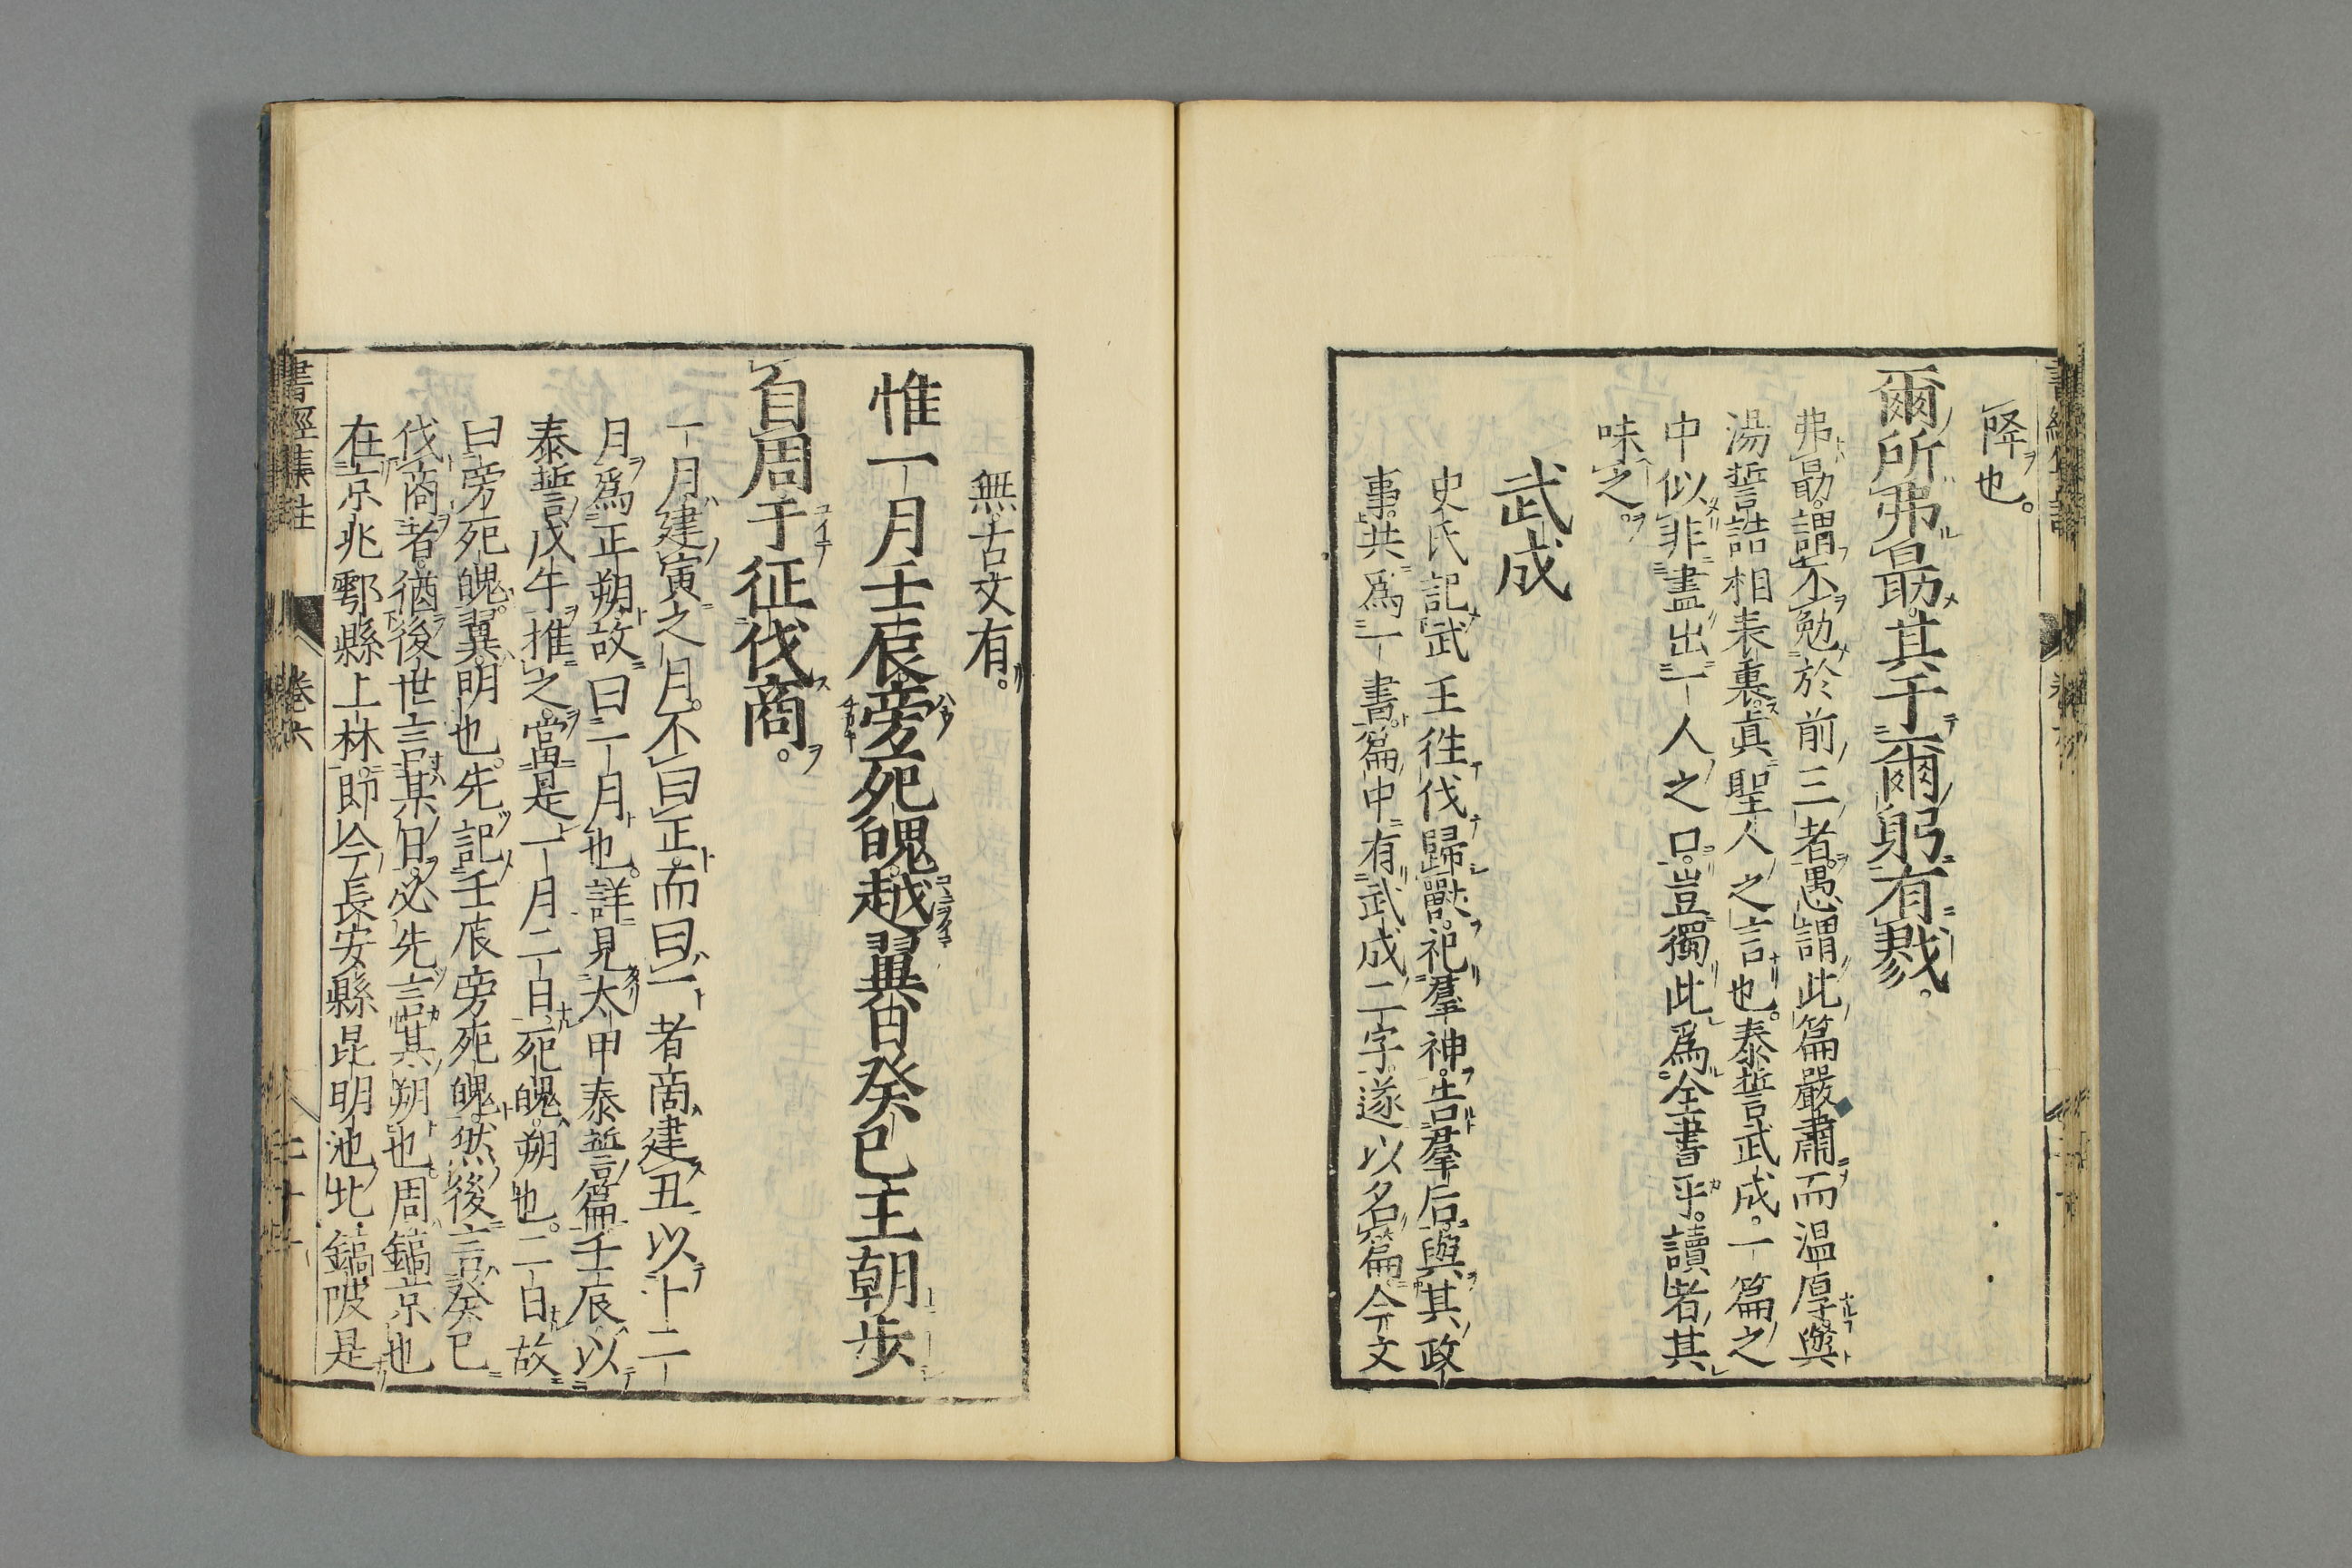 降也。
爾所弗勗。其于爾躬有戮。
弗勗。謂不勉於前三者。愚謂此篇嚴肅而温厚。與
湯誓誥相表裏。眞聖人之言也。泰誓武成。一篇之
中似非盡出一人之口。豈獨此爲全書乎。讀者其
味之。
武成
史氏記武王徃伐歸獸。祀羣神。告羣后。與其政
事。共爲一書。篇中有武成二字。遂以名篇。今文
無。古文有。
惟一月壬辰旁死魄。越翼日癸巳王朝步
自周于征伐商。
一月。建寅之月。不曰正而曰一者。商建丑。以十二
月爲正朔。故曰一月也。詳見太甲泰誓篇。壬辰。以
泰誓戊午推之。當是一月二日。死魄。朔也。二日。故
曰旁死魄。翼。明也。先記壬辰旁死魄。然後言癸巳
伐商者。猶後世言某日。必先言某朔也。周。鎬京也
在京兆鄠縣上林。卽今長安縣昆明池北鎬陂是
書經集註
卷六
二十一